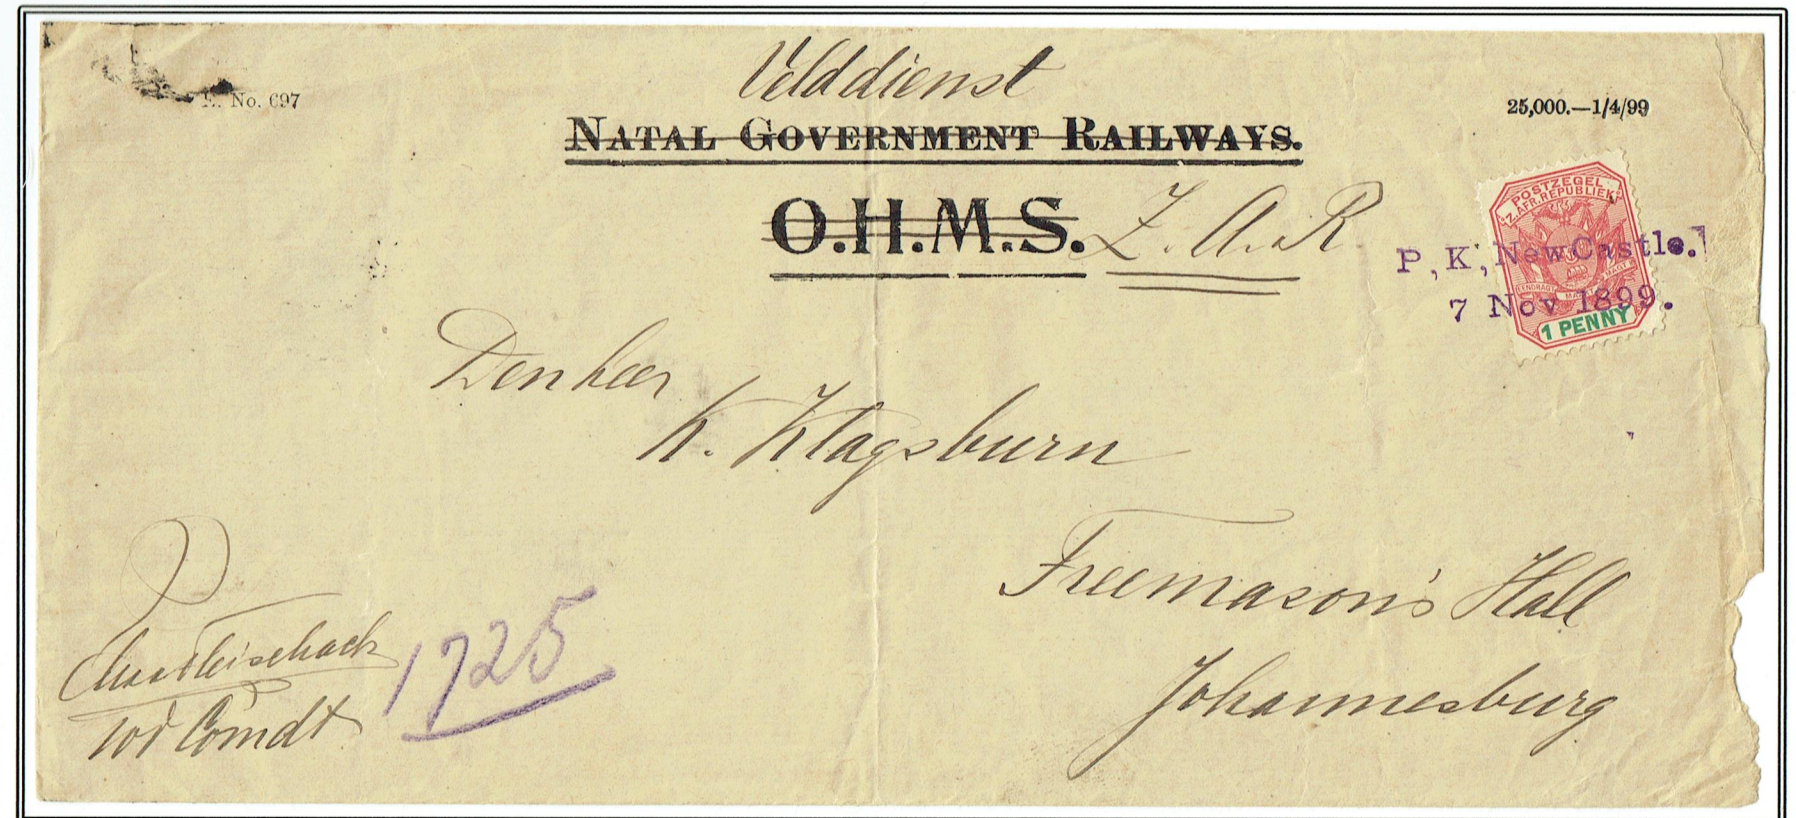 Velddienst
E. No. 697
25,000.—1/4/99
NATAL GOVERNMENT RAILWAYS.
O.H.M.S. Z.A.R
POSTZEGEL
Z. AFR. REPUBLIEK
EENDRAGT MAAKT MAGT
1 PENNY
P,K,NewCastle.
7 Nov 1899.
Den heer
K. Klagsburn
Freemason's Hall
Johannesburg
Comdt
1725